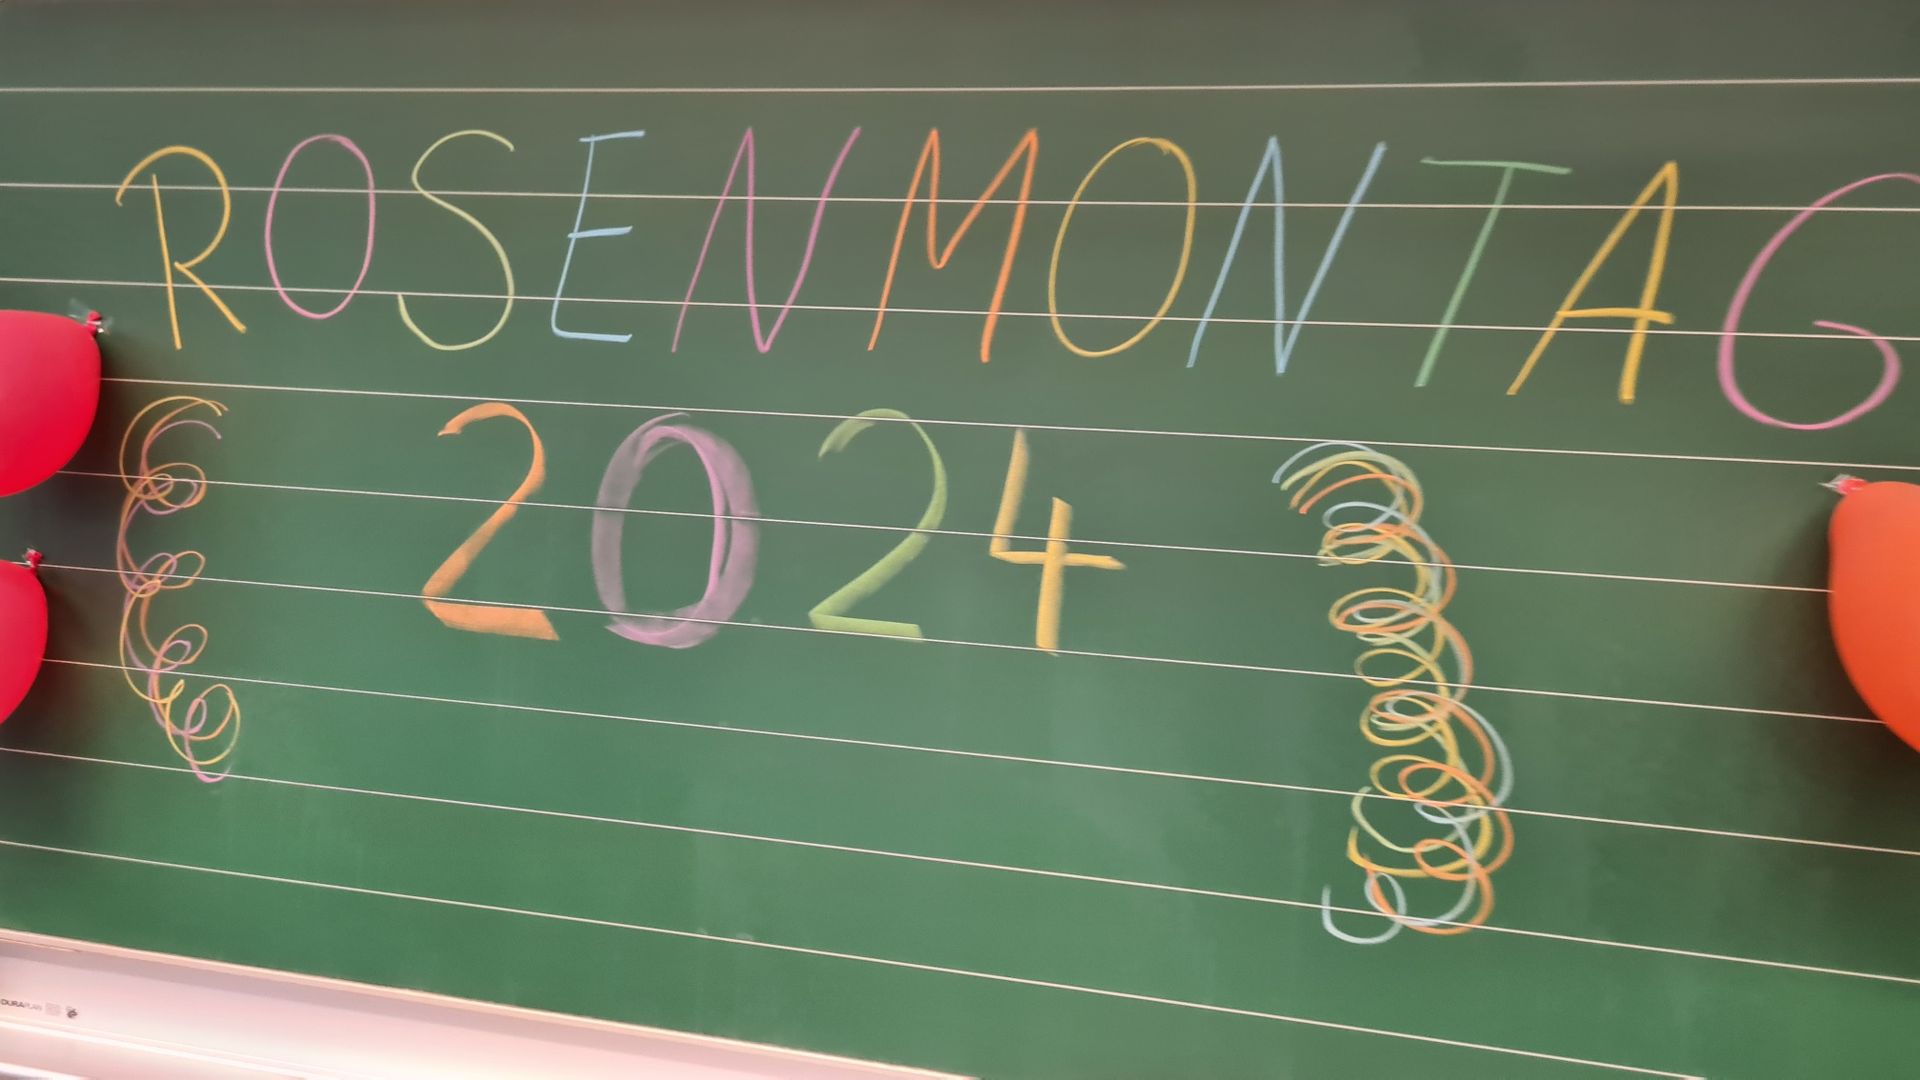 ROSENMONTAG
2024
DURAPLAN